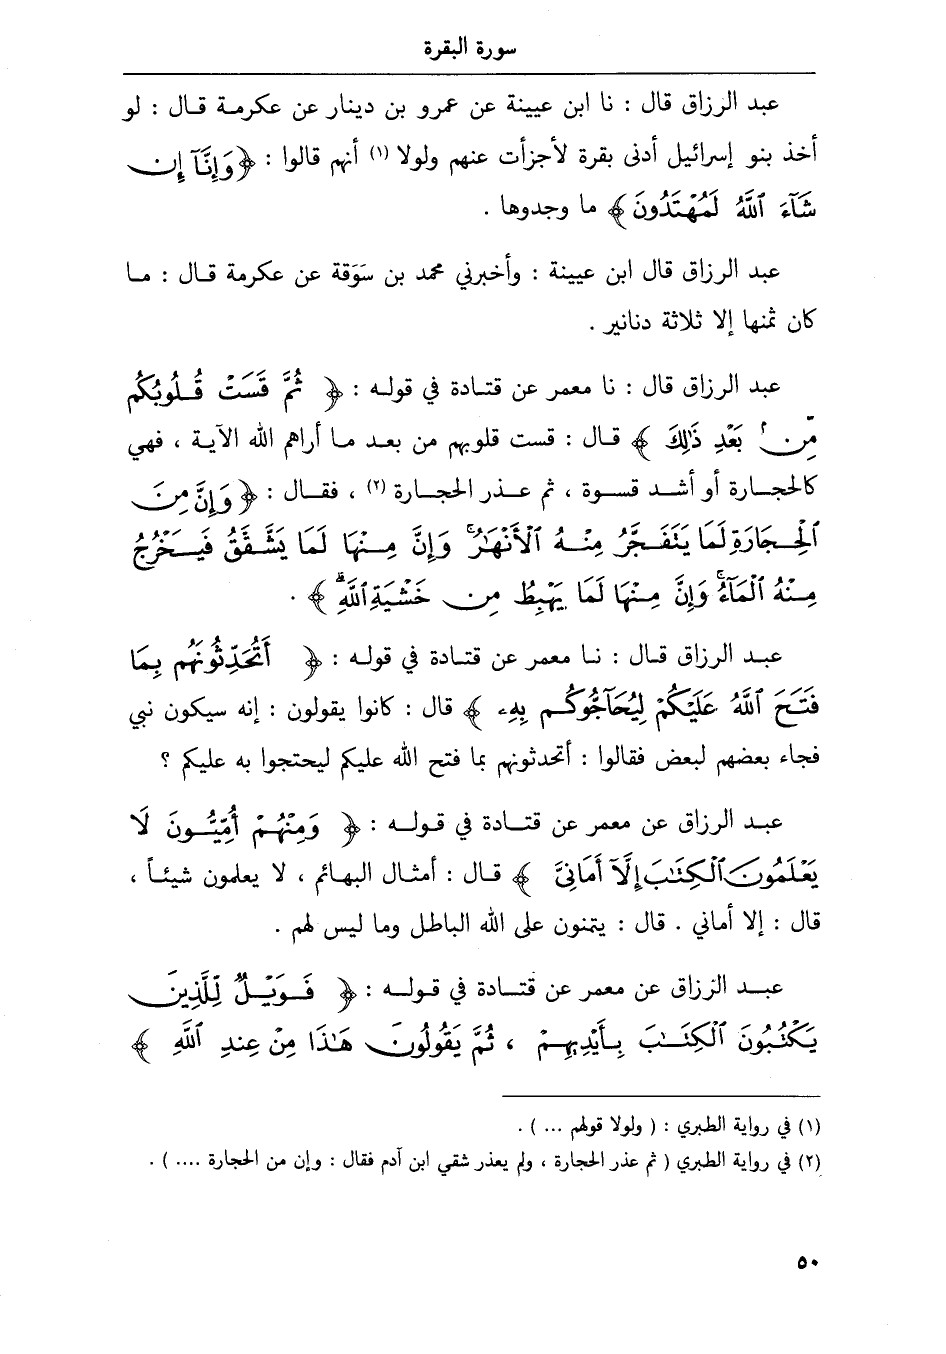 سورة البقرة
عبد الرزاق قال : نا ابن عيينة عن عمرو بن دينار عن عكرمة قال : لو
أخذ بنو إسرائيل أدنى بقرة لأجزأت عنهم ولولا (١) أنهم قالوا : ﴿ وَإِنَّآ إِن
شَآءَ ٱللَّهُ لَمُهْتَدُونَ ﴾ ما وجدوها .
عبد الرزاق قال ابن عيينة : وأخبرني محمد بن سَوَقة عن عكرمة قال : ما
كان ثمنها إلا ثلاثة دنانير .
عبد الرزاق قال : نا معمر عن قتادة في قوله : ﴿ ثُمَّ قَسَتْ قُلُوبُكُم
مِّنۢ بَعْدِ ذَٰلِكَ ﴾ قال : قست قلوبهم من بعد ما أراهم الله الآية ، فهي
كالحجارة أو أشد قسوة ، ثم عذر الحجارة (٢) ، فقال : ﴿ وَإِنَّ مِنَ
ٱلْحِجَارَةِ لَمَا يَتَفَجَّرُ مِنْهُ ٱلْأَنْهَٰرُ ۚ وَإِنَّ مِنْهَا لَمَا يَشَّقَّقُ فَيَخْرُجُ
مِنْهُ ٱلْمَآءُ ۚ وَإِنَّ مِنْهَا لَمَا يَهْبِطُ مِنْ خَشْيَةِ ٱللَّهِ ۗ ﴾ .
عبد الرزاق قال : نا معمر عن قتادة في قوله : ﴿ أَتُحَدِّثُونَهُم بِمَا
فَتَحَ ٱللَّهُ عَلَيْكُمْ لِيُحَآجُّوكُم بِهِۦ ﴾ قال : كانوا يقولون : إنه سيكون نبي
فجاء بعضهم لبعض فقالوا : أتحدثونهم بما فتح الله عليكم ليحتجوا به عليكم ؟
عبد الرزاق عن معمر عن قتادة في قوله : ﴿ وَمِنْهُمْ أُمِّيُّونَ لَا
يَعْلَمُونَ ٱلْكِتَٰبَ إِلَّآ أَمَانِيَّ ﴾ قال : أمثال البهائم ، لا يعلمون شيئاً ،
قال : إلا أماني . قال : يتمنون على الله الباطل وما ليس لهم .
عبد الرزاق عن معمر عن قتادة في قوله : ﴿ فَوَيْلٌ لِّلَّذِينَ
يَكْتُبُونَ ٱلْكِتَٰبَ بِأَيْدِيهِمْ ، ثُمَّ يَقُولُونَ هَٰذَا مِنْ عِندِ ٱللَّهِ ﴾
(١) في رواية الطبري : ( ولولا قولهم ... ) .
(٢) في رواية الطبري ( ثم عذر الحجارة ، ولم يعذر شقي ابن آدم فقال : وإن من الحجارة .... ) .
٥٠